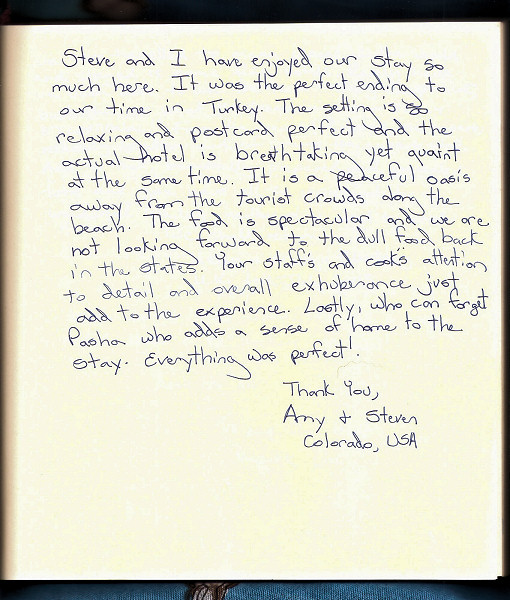 Steve and I have enjoyed our stay so
much here. It was the perfect ending to
our time in Turkey. The setting is so
relaxing and postcard perfect and the
actual hotel is breathtaking yet quaint
at the same time. It is a peaceful oasis
away from the tourist crowds along the
beach. The food is spectacular and we are
not looking forward to the dull food back
in the states. Your staff's and cook's attention
to detail and overall exhuberance just
add to the experience. Lastly, who can forget
Pasha who adds a sense of home to the
stay. Everything was perfect!
Thank You,
Amy & Steven
Colorado, USA